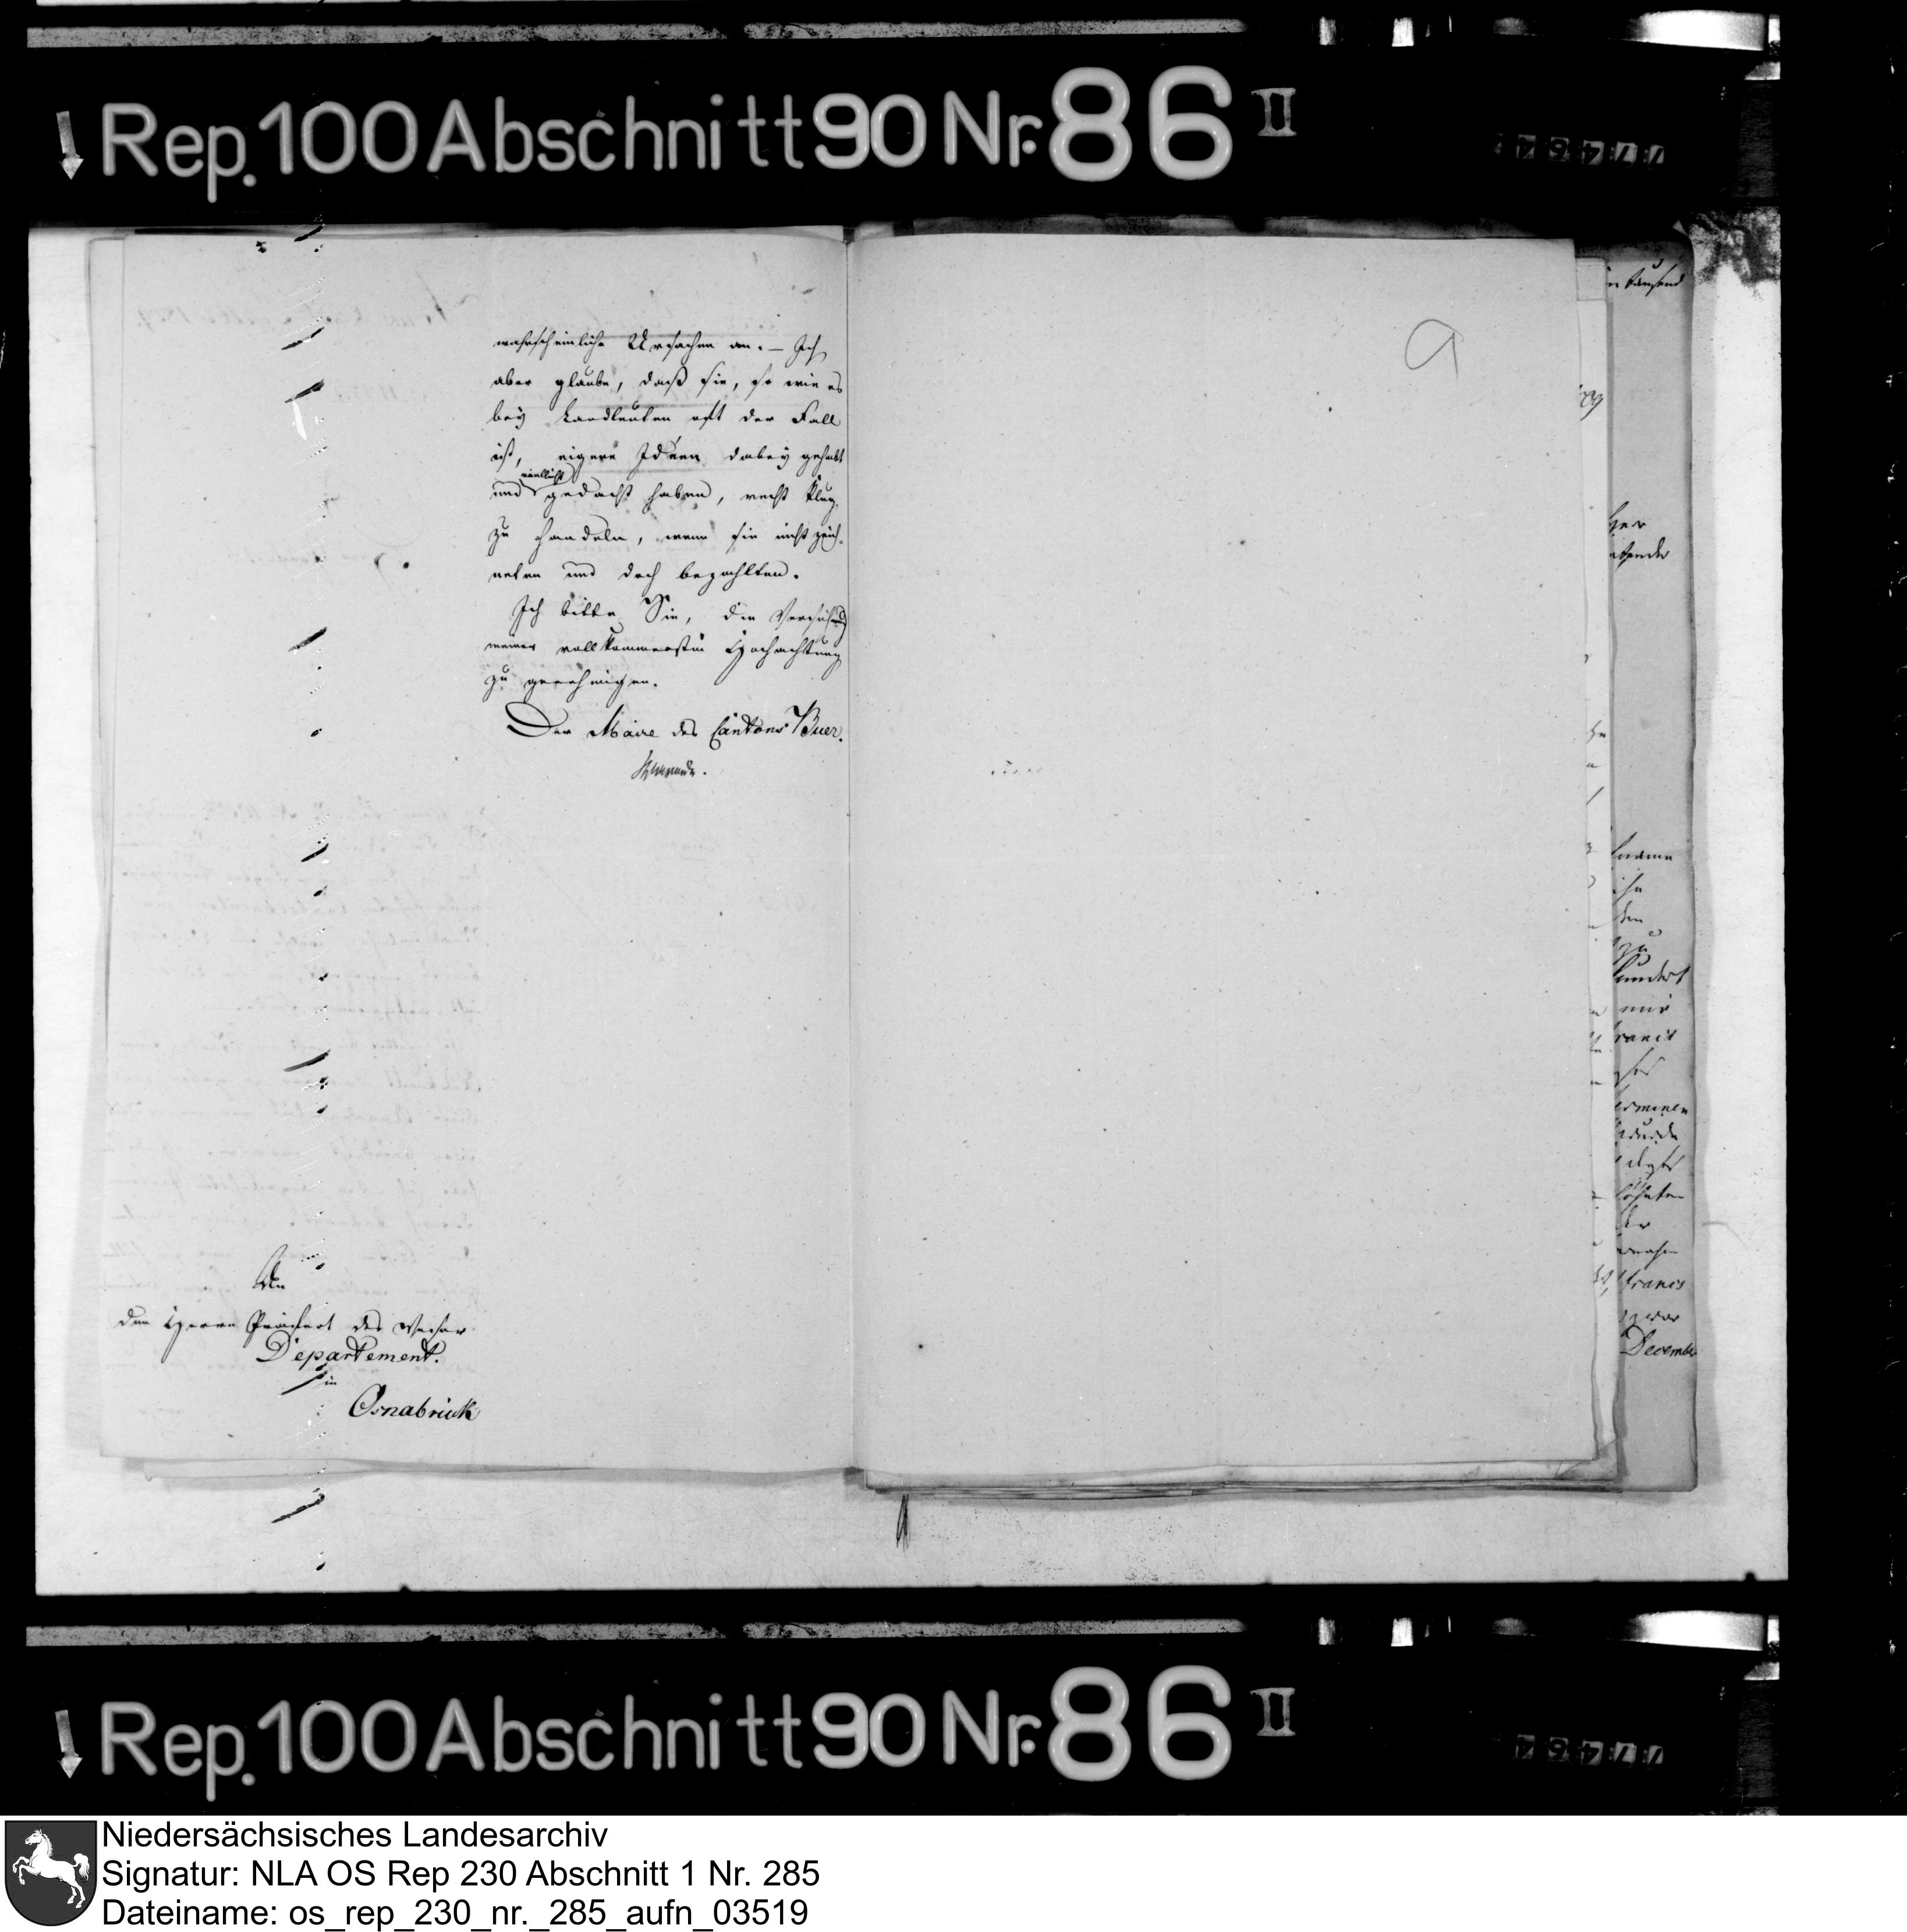 Rep. 100 Abschnitt 90 Nr. 86 II
wahrscheinliche Ursachen an. – Ich
aber glaube, daß sie, so wie es
bey Landleuten oft der Fall
ist, eigene Ideen dabey gehabt
und vielleicht gedacht haben, recht klug
zu handeln, wenn sie nicht zeich-
neten und doch bezahlten.
Ich bitte Sie, die Versicherung
meiner vollkommensten Hochachtung
zu genehmigen.
Der Maire des Cantons Buer.
An
den Herrn Präfect des Weser
Departement.
in
Osnabrück
9
tausend
hundert
December
Rep. 100 Abschnitt 90 Nr. 86 II
Niedersächsisches Landesarchiv
Signatur: NLA OS Rep 230 Abschnitt 1 Nr. 285
Dateiname: os_rep_230_nr._285_aufn_03519